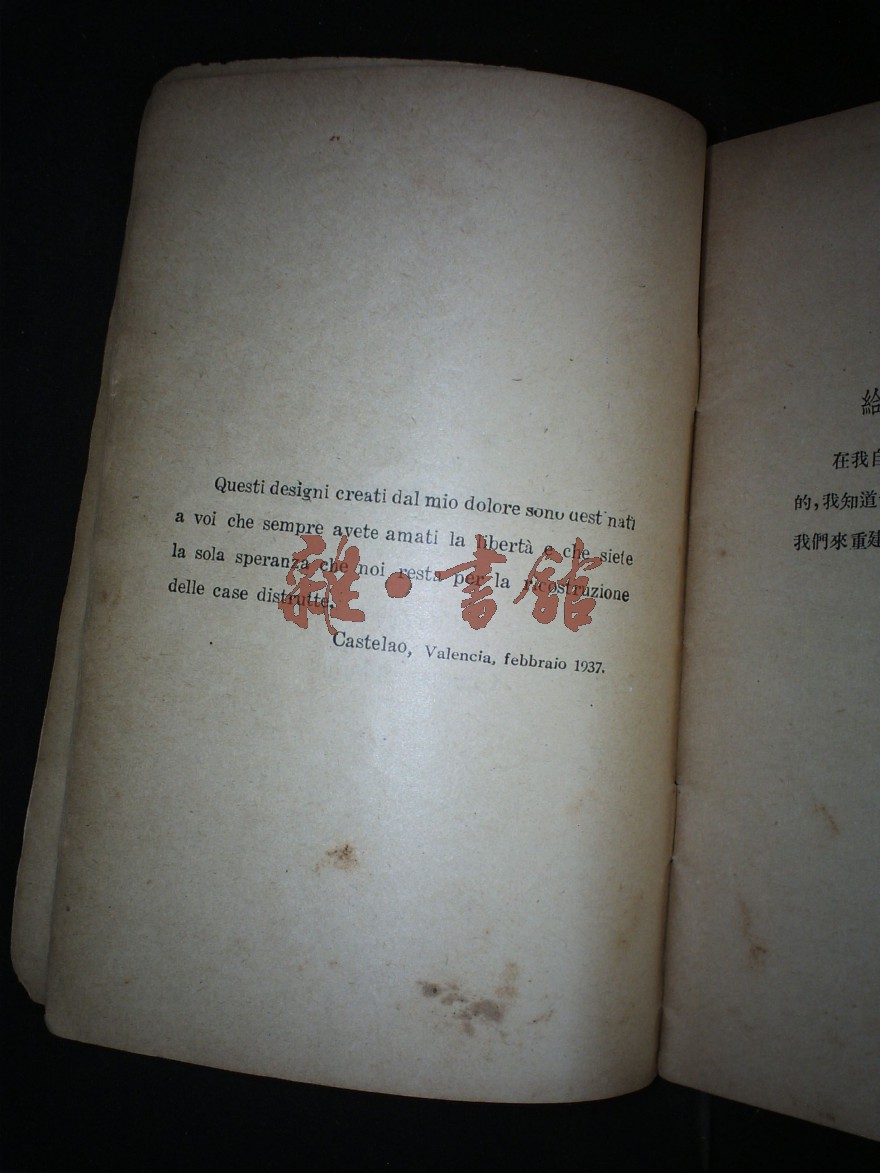 Questi designi creati dal mio dolore sono destinati
a voi che sempre avete amati la libertà e che siete
la sola speranza che noi resta per la ricostruzione
delle case distrutte.
Castelao, Valencia, febbraio 1937.
雜·書館
給
在我自
的,我知道
我們來重建